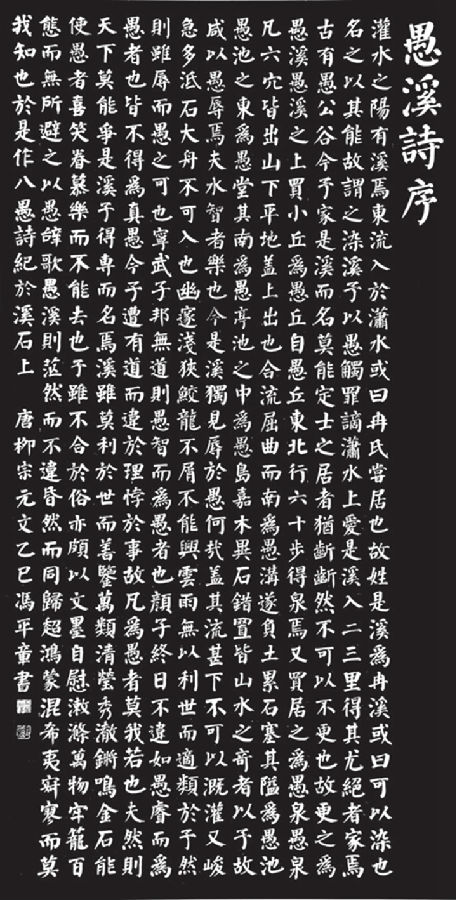 愚溪詩序
灌水之陽有溪焉東流入於瀟水或曰冉氏嘗居也故姓是溪為冉溪或曰可以染也
名之以其能故謂之染溪予以愚觸罪謫瀟水上愛是溪入二三里得其尤絕者家焉
古有愚公谷今予家是溪而名莫能定士之居者猶齗齗然不可以不更也故更之為
愚溪愚溪之上買小丘為愚丘自愚丘東北行六十步得泉焉又買居之為愚泉愚泉
凡六穴皆出山下平地蓋上出也合流屈曲而南為愚溝遂負土累石塞其隘為愚池
愚池之東為愚堂其南為愚亭池之中為愚島嘉木異石錯置皆山水之奇者以予故
咸以愚辱焉夫水智者樂也今是溪獨見辱於愚何哉蓋其流甚下不可以溉灌又峻
急多坻石大舟不可入也幽邃淺狹蛟龍不屑不能興雲雨無以利世而適類於予然
則雖辱而愚之可也甯武子邦無道則愚智而為愚者也顏子終日不違如愚睿而為
愚者也皆不得為真愚今予遭有道而違於理悖於事故凡為愚者莫我若也夫然則
天下莫能爭是溪予得專而名焉溪雖莫利於世而善鑒萬類清瑩秀澈鏘鳴金石能
使愚者喜笑眷慕樂而不能去也予雖不合於俗亦頗以文墨自慰漱滌萬物牢籠百
態而無所避之以愚辭歌愚溪則茫然而不違昏然而同歸超鴻蒙混希夷寂寥而莫
我知也於是作八愚詩紀於溪石上 唐柳宗元文乙巳馮平童書